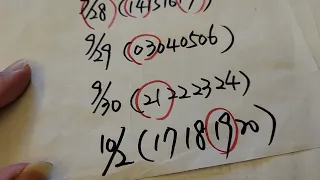 9/28) (14151617)
9/29 (03040506)
9/30 (21222324)
10/2 (17181920)